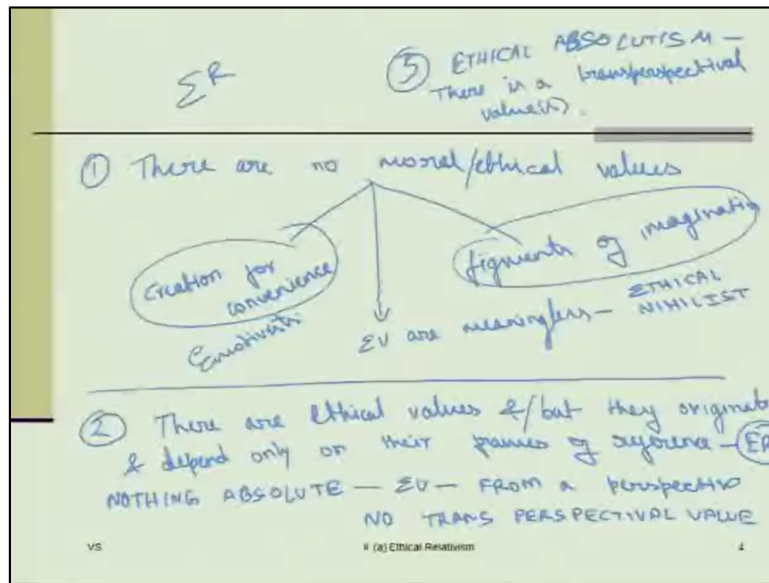 ΣR
③ ETHICAL ABSOLUTISM —
There is a transperspectival
value(s).
① There are no moral/ethical values
Creation for
convenience
Emotivists
figments of imagination
ΣV are meaningless — ETHICAL
NIHILIST
② There are Ethical values &/but they originate
& depend only on their frames of reference — ER
NOTHING ABSOLUTE — ΣV — FROM a perspective
NO TRANS PERSPECTIVAL VALUE
VS
II (a) Ethical Relativism
4